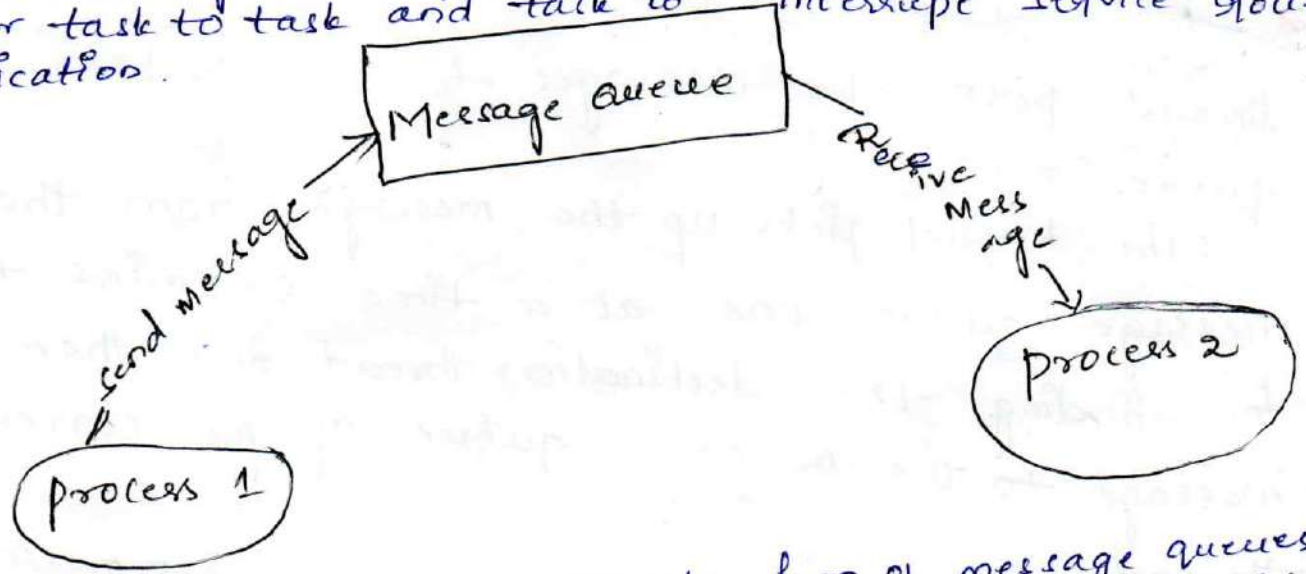 r task to task and talk to interrupt service rou
ication.
Message Queue
send message
Receive
Mess
age
process 1
process 2
of message queues